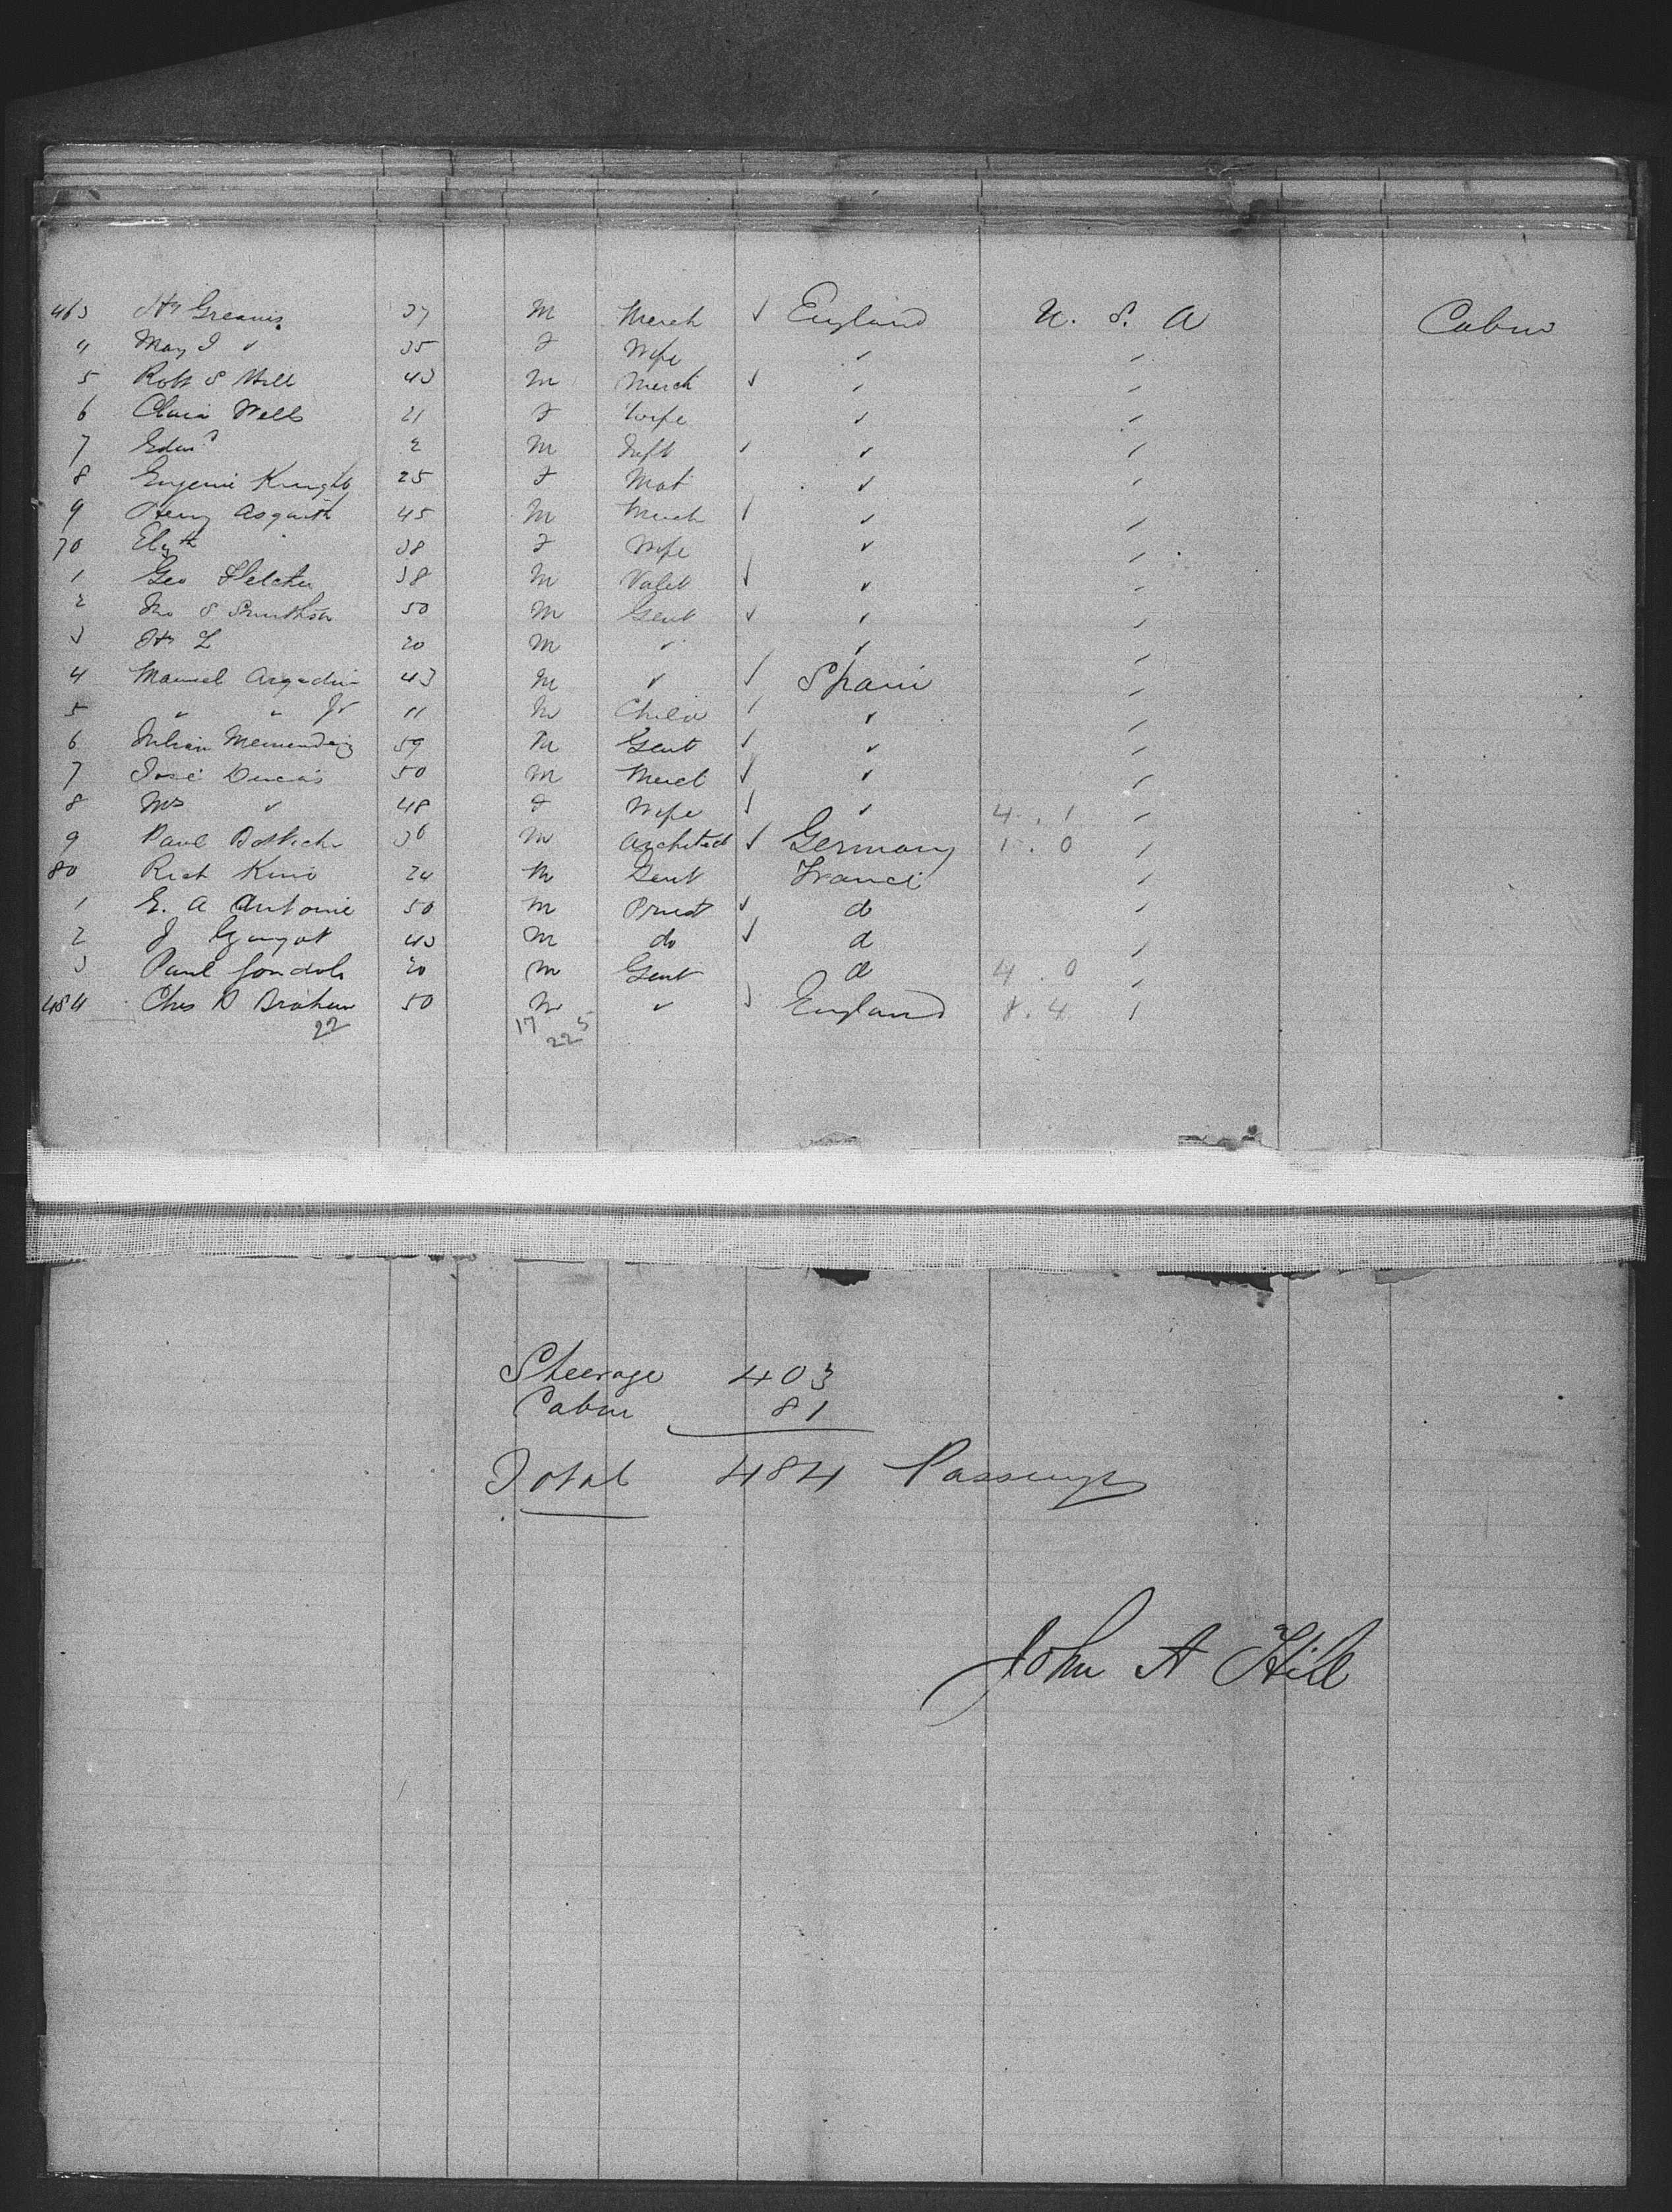 463 Hy Greaves 37 M Merch ✓ England U. S. A Cabin
4 May J ✓ 35 F Wife ✓
5 Robt S Hill 43 M Merch ✓
6 Clara Well 21 F Wife ✓
7 Edwd 2 M Inft ✓
8 Eugenie Knight 25 F Mat ✓
9 Henry Asquith 45 M Merch ✓
70 Elizth 38 F Wife ✓
1 Geo Fletcher 38 M Valet ✓
2 Jno S Smithson 50 M Gent ✓
3 Hy L 20 M ✓
4 Manuel 43 M ✓ Spain
5 " " Jr 11 M Child ✓
6 Julian 59 M Gent ✓
7 José 50 M Merct ✓
8 Mrs ✓ 48 F Wife ✓ 4. 1
9 Paul 36 M Architect ✓ Germany 1. 0
80 Rich King 24 M Gent France
1 E. A Antoine 50 M Priest ✓ d
2 J 43 M do ✓ d
3 Paul 20 M Gent d 4. 0
484 Chs D 50 M ✓ England 8. 4
22 17 5
22
Steerage 403
Cabin 81
Total 484 Passengers
John A Hill